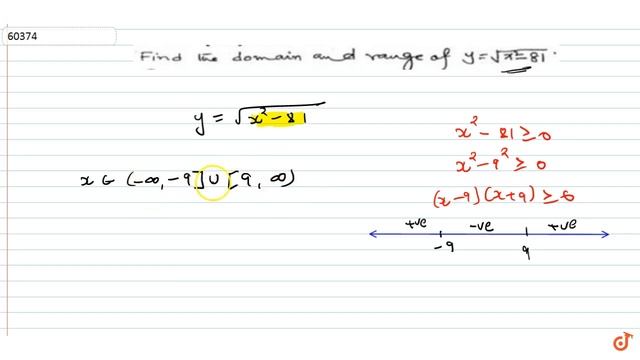 60374
Find the domain and range of y=√x²-81.
y = √x² - 81
x² - 81 ≥ 0
x² - 9² ≥ 0
(x-9)(x+9) ≥ 0
x ∈ (-∞, -9] ∪ [9, ∞)
+ve -ve +ve
-9 9